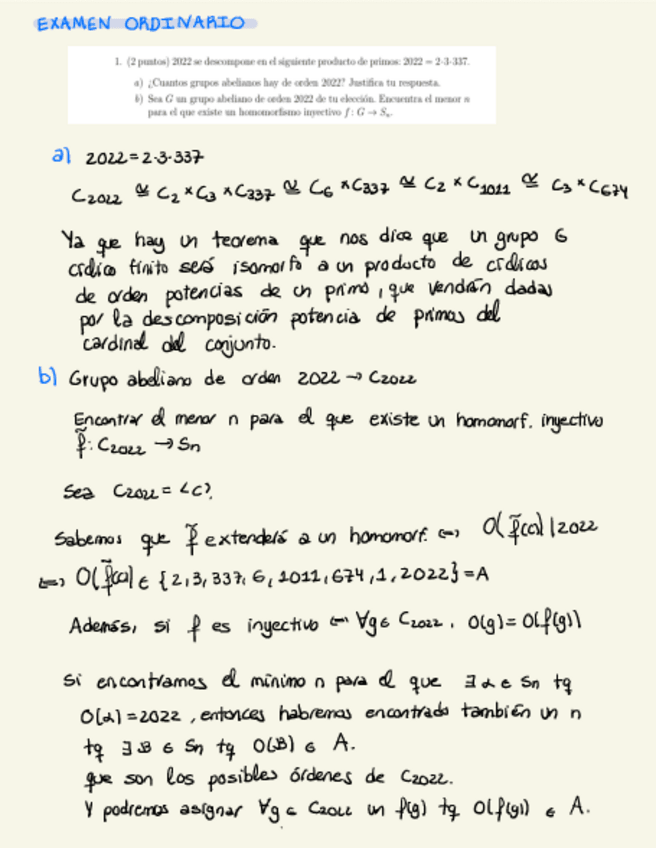 EXAMEN ORDINARIO
1. (2 puntos) 2022 se descompone en el siguiente producto de primos: 2022 = 2·3·337.
a) ¿Cuantos grupos abelianos hay de orden 2022? Justifica tu respuesta.
b) Sea G un grupo abeliano de orden 2022 de tu elección. Encuentra el menor n
para el que existe un homomorfismo inyectivo f : G → Sₙ.
a) 2022 = 2·3·337
C2022 ≅ C2 × C3 × C337 ≅ C6 × C337 ≅ C2 × C1011 ≅ C3 × C674
Ya que hay un teorema que nos dice que un grupo G
cíclico finito será isomorfo a un producto de cíclicos
de orden potencias de un primo, que vendrán dadas
por la descomposición potencia de primos del
cardinal del conjunto.
b) Grupo abeliano de orden 2022 → C2022
Encontrar el menor n para el que existe un homomorf. inyectivo
f̃: C2022 → Sn
Sea C2022 = <C>.
Sabemos que f̃ extenderá a un homomorf. ⟺ O(f̃(c)) | 2022
⟺ O(f̃(c)) ∈ {2, 3, 337, 6, 1011, 674, 1, 2022} = A
Además, si f es inyectivo ⟺ ∀g ∈ C2022, O(g) = O(f(g))
Si encontramos el mínimo n para el que ∃ α ∈ Sn tq
O(α) = 2022, entonces habremos encontrado también un n
tq ∃ β ∈ Sn tq O(β) ∈ A.
que son los posibles órdenes de C2022.
Y podremos asignar ∀g ∈ C2022 un f(g) tq O(f(g)) ∈ A.